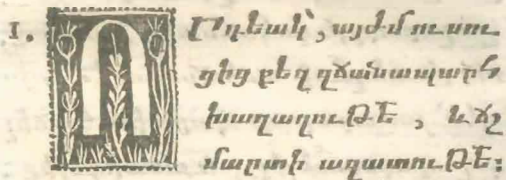 1. ՈՐդեակ՝, այժմ ուսու
ցից քեզ զճանապարհ
խաղաղութե, և ճշ
մարտի ազատութե։